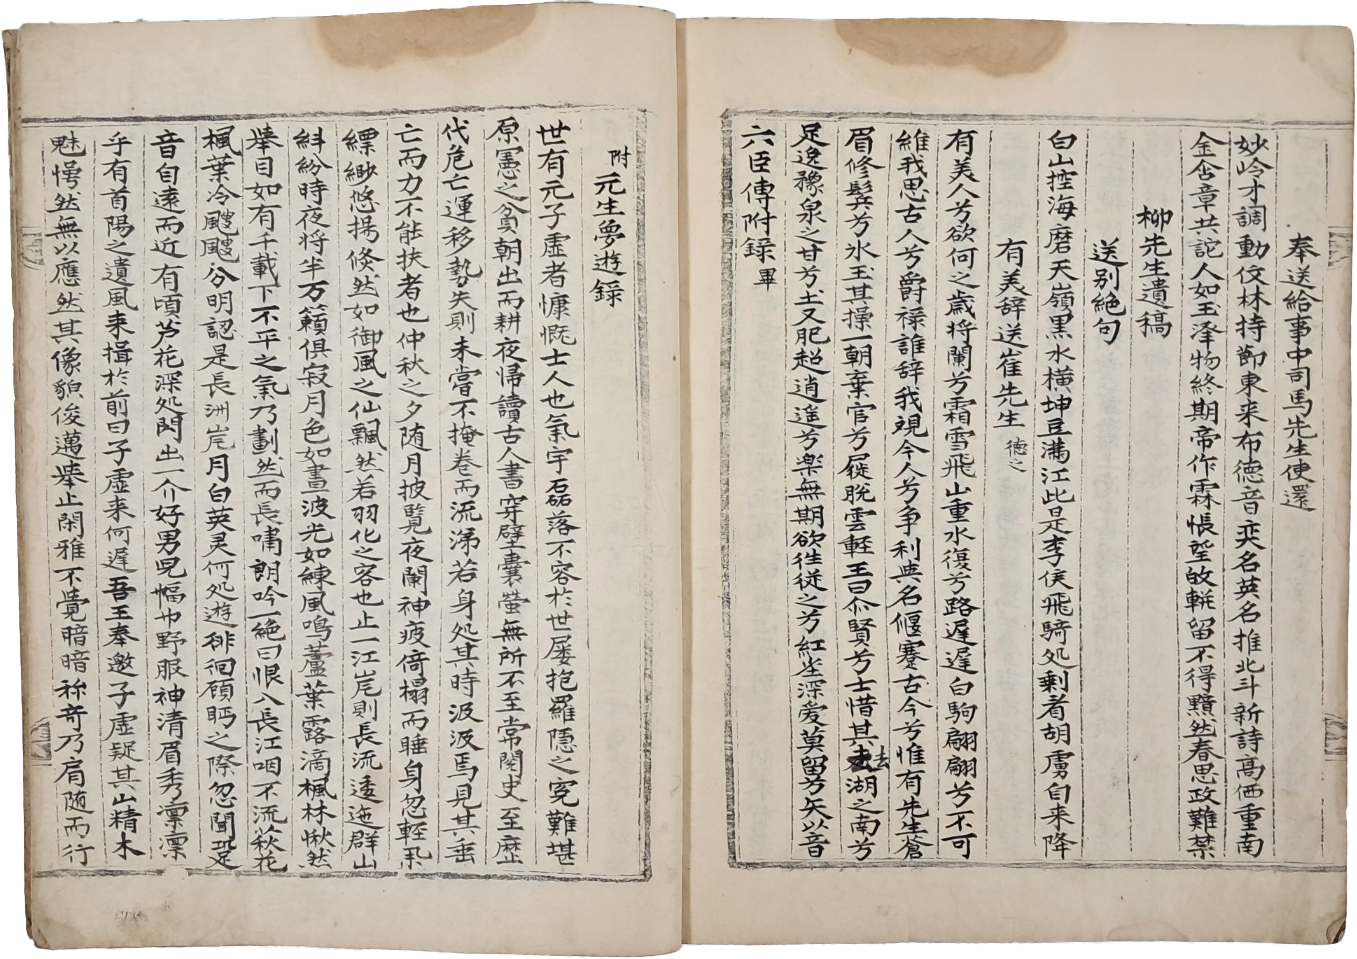 奉送給事中司馬先生使還
妙岭才調動佼林持節東来布德音奕名英名推北斗新詩髙価重南
金銮章共詫人如玉泽物終期帝作霖悵望攸軿留不得黯然春思政難禁
柳先生遺稿
送别絶句
白山控海磨天嶺黒水橫坤豆满江此是李侯飛騎処剩着胡虜自来降
有美辞送崔先生 德之
有美人兮欲何之歳将闌兮霜雪飛山重水復兮路遅遅白駒翩翩兮不可
維我思古人兮爵禄誰辞我覌今人兮争利與名偃蹇古今兮惟有先生蒼
眉修髯兮氷玉其操一朝棄官兮屣脱雲軽王曰尒賢兮士惜其去湖之南兮
足逸豫泉之甘兮土又肥趍逍遥兮楽無期欲徃従之兮紅尘深爱莫留兮矢以音
六臣傳附録畢
附元生夢遊録
世有元子虚者慷慨士人也氣宇磊落不容於世屡抱羅隠之寃難堪
原憲之貧朝出而耕夜帰讀古人書穿壁囊螢無所不至常閱史至歴
代危亡運移勢失則未嘗不掩巻而流涕若身処其時汲汲焉見其垂
亡而力不能扶者也仲秋之夕随月披覧夜闌神疲倚榻而睡身忽輊飛
縹緲悠揚倏然如御風之仙飄然若羽化之客也止一江岸則長流逶迤群山
糾紛時夜将半万籟俱寂月色如晝波光如練風鳴蘆葉露滴楓林愀然
擧目如有千載下不平之氣乃劃然而長嘯朗吟一絶曰恨入長江咽不流荻花
楓葉冷颼颼分明認是長洲岸月白英灵何処遊徘徊顧眄之際忽聞跫
音自遠而近有頃芦花深処閃出一介好男児幅巾野服神清眉秀凜凜
乎有首陽之遺風来揖於前曰子虚来何遅吾王奉邀子虚疑其山精木
魅愕然無以應然其像貌俊邁擧止閑雅不覺暗暗称奇乃肩随而行